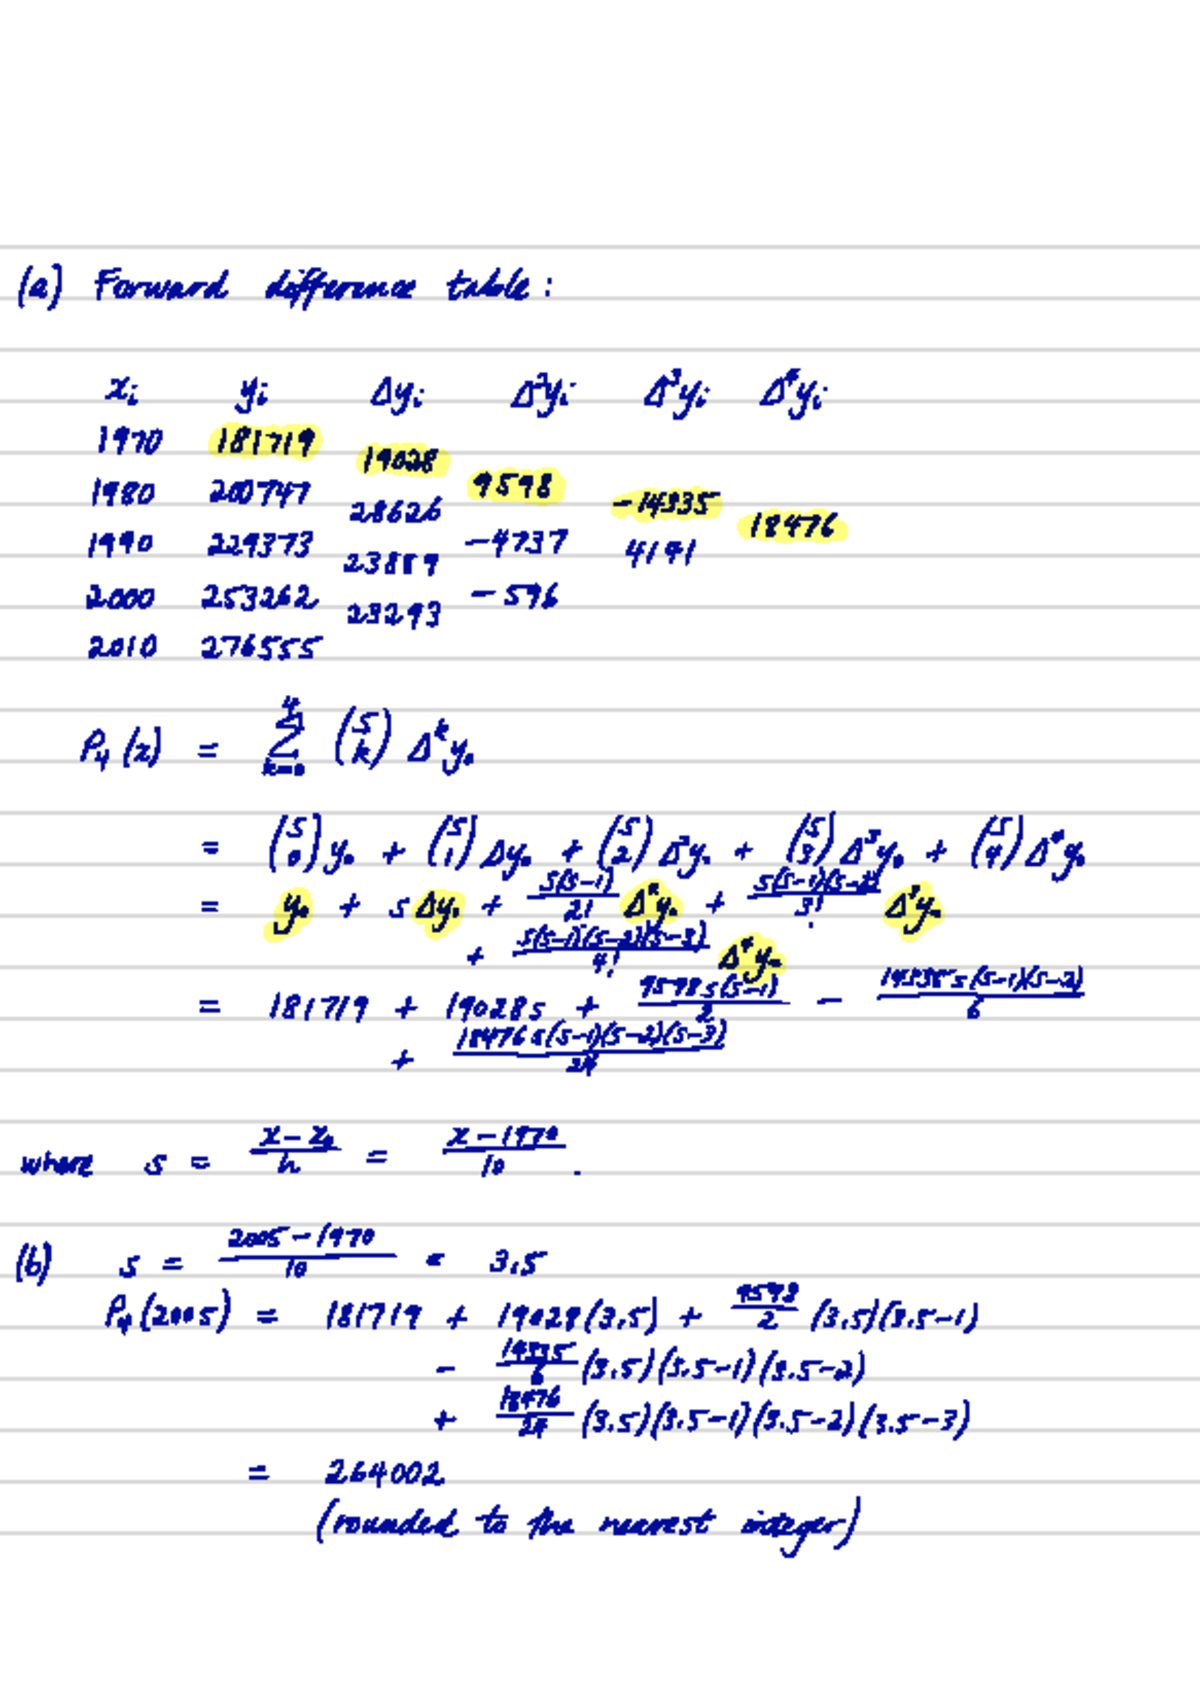 (a) Forward difference table:
xᵢ yᵢ Δyᵢ Δ²yᵢ Δ³yᵢ Δ⁴yᵢ
1970 181719
19028
1980 200747 9598
28626 -14335
1990 229373 -4737 18476
23889 4141
2000 253262 -596
23293
2010 276555
P₄(x) = Σ_{k=0}^{4} (s k) Δᵏy₀
= (s 0) y₀ + (s 1) Δy₀ + (s 2) Δ²y₀ + (s 3) Δ³y₀ + (s 4) Δ⁴y₀
= y₀ + s Δy₀ + s(s-1)/2! Δ²y₀ + s(s-1)(s-2)/3! Δ³y₀
+ s(s-1)(s-2)(s-3)/4! Δ⁴y₀
= 181719 + 19028s + 9598s(s-1)/2 - 14335s(s-1)(s-2)/6
+ 18476s(s-1)(s-2)(s-3)/24
where s = (x-x₀)/h = (x-1970)/10.
(b) s = (2005-1970)/10 = 3.5
P₄(2005) = 181719 + 19028(3.5) + 9598/2 (3.5)(3.5-1)
- 14335/6 (3.5)(3.5-1)(3.5-2)
+ 18476/24 (3.5)(3.5-1)(3.5-2)(3.5-3)
= 264002
(rounded to the nearest integer)